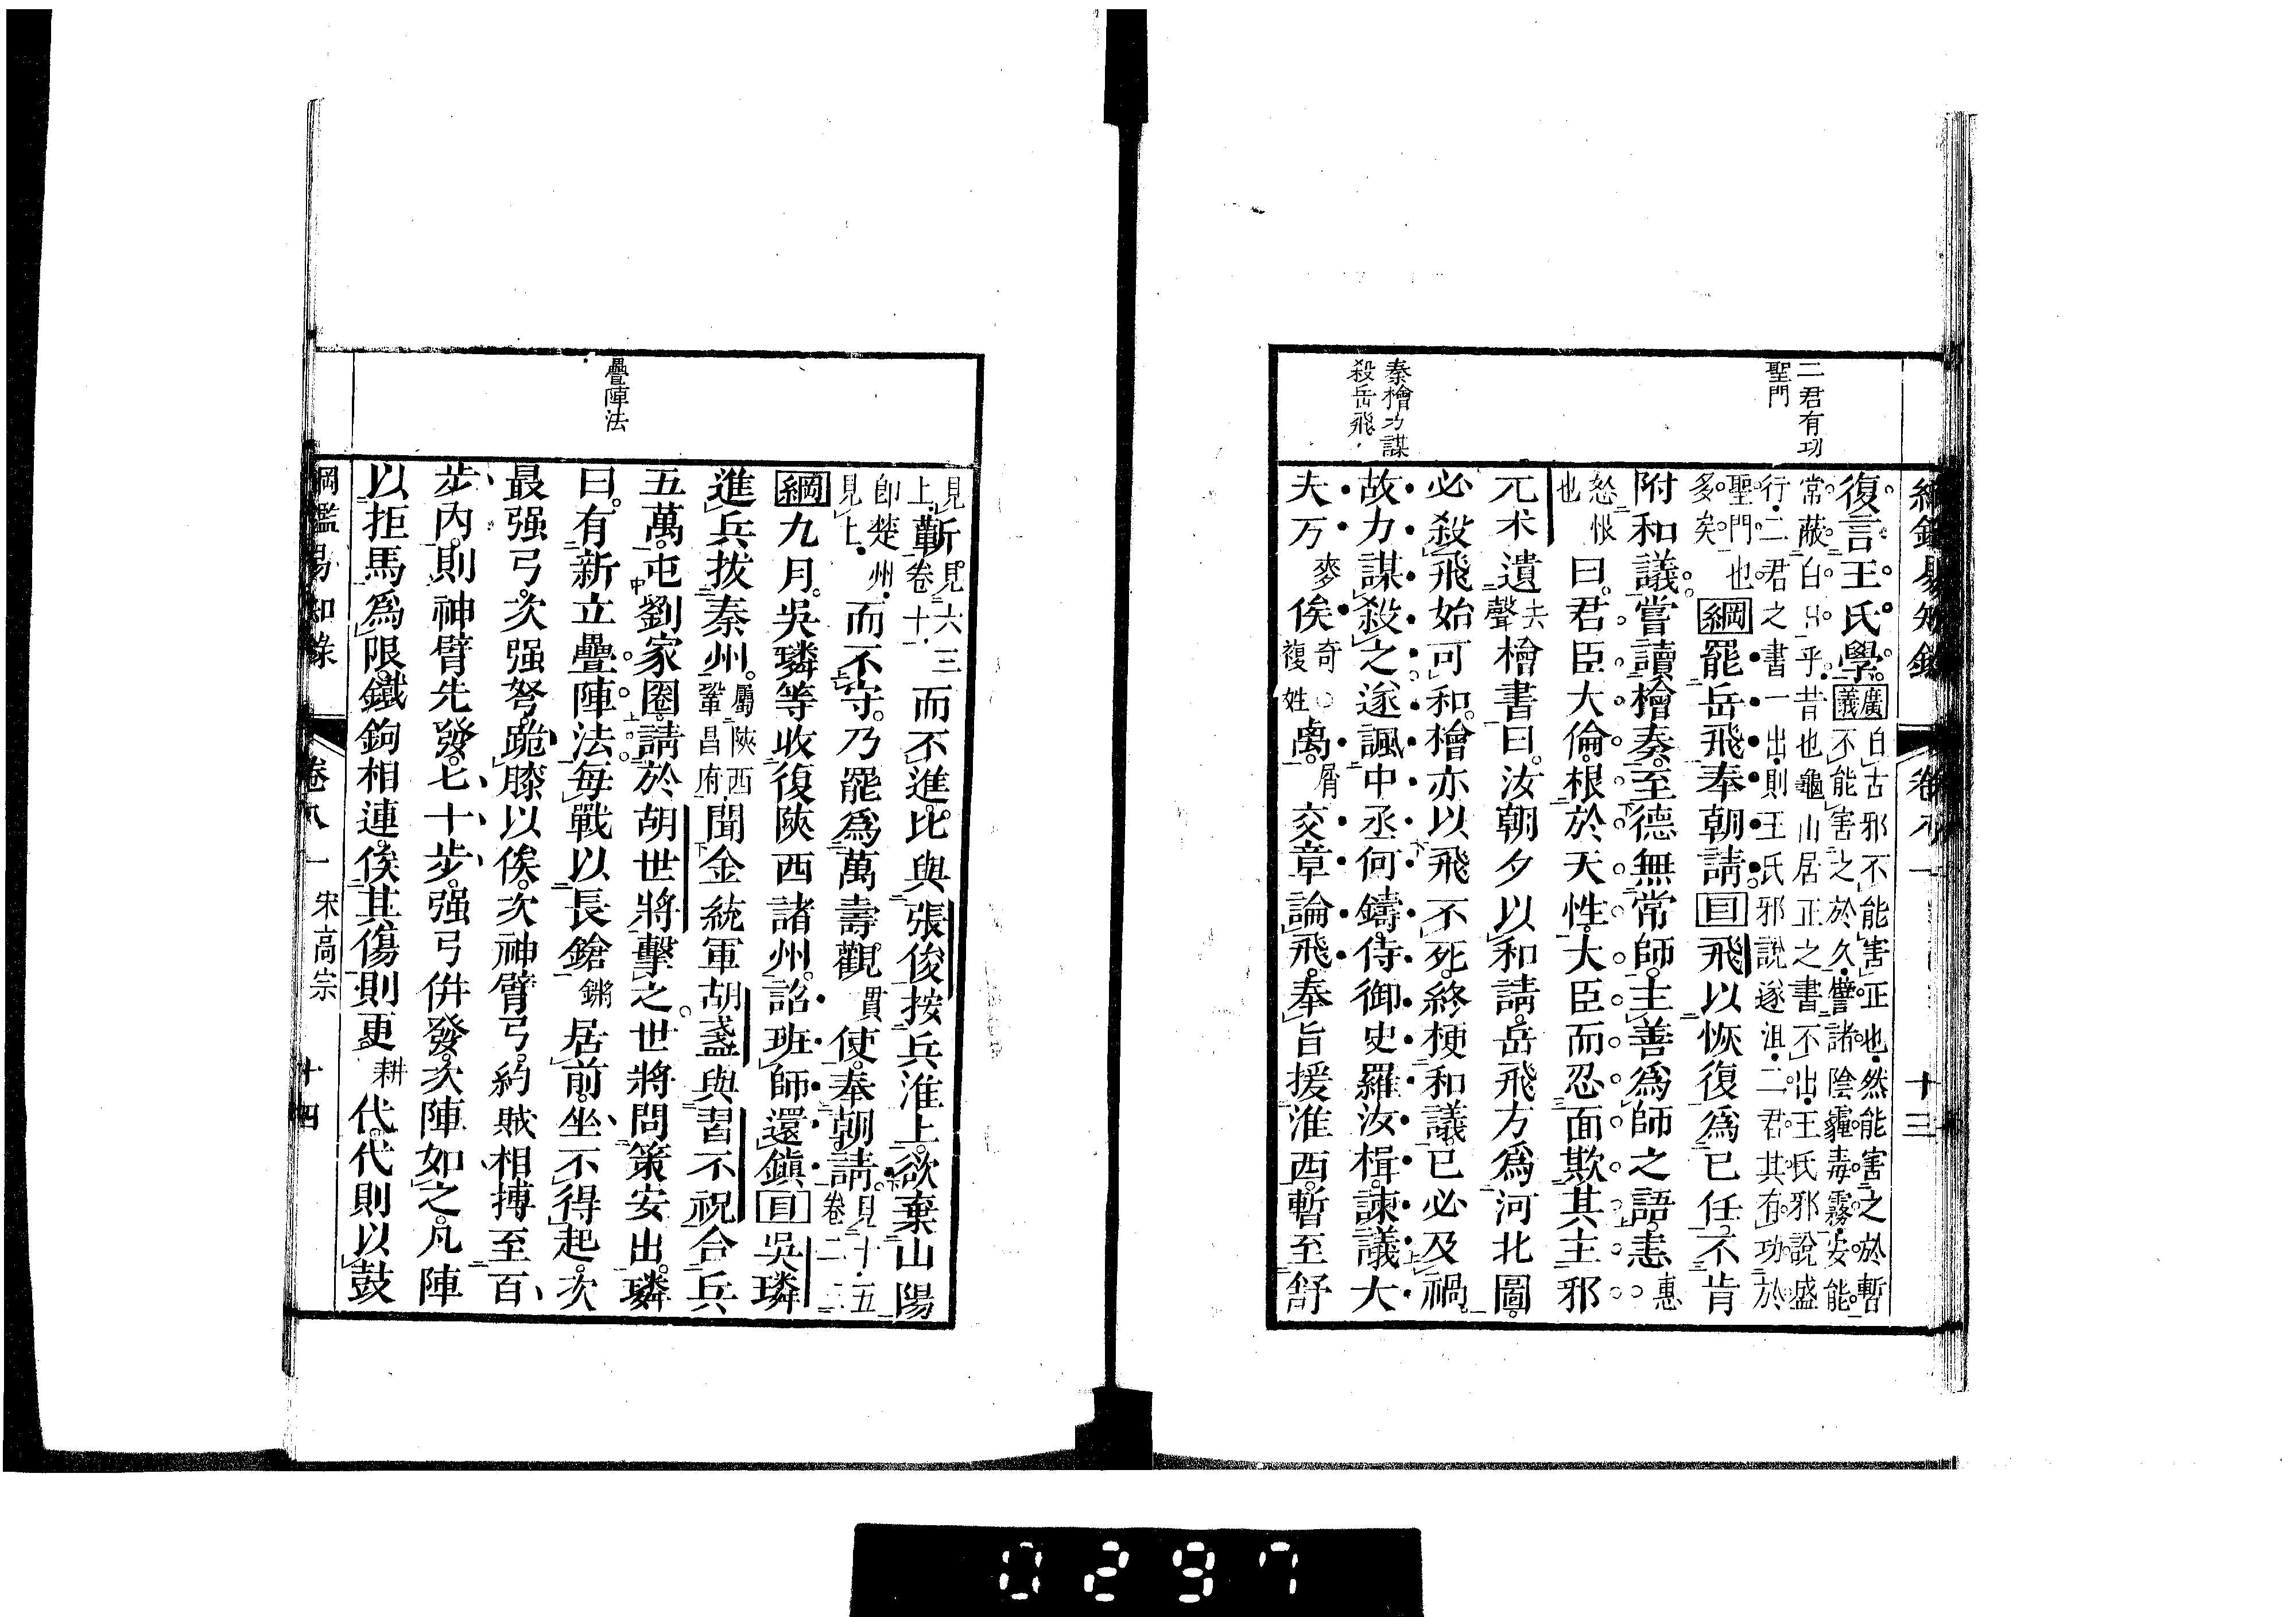 綱鑑易知錄 卷八一 十三
二君有功
聖門
秦檜力謀
殺岳飛
復言王氏學。廣義白古邪不能害正也然能害之於暫
不能害之於久譬諸陰霾毒霧安能
常蔽白日乎昔也龜山居正之書不出王氏邪說盛
行二君之書一出則王氏邪說遂沮二君其有功於
聖門也
多矣
綱罷岳飛奉朝請。目飛以恢復爲已任不肯
附和議嘗讀檜奏至德無常師主善爲師之語恚惠
怒恨
也曰君臣大倫根於天性大臣而忍面欺其主邪
兀术遺去聲檜書曰汝朝夕以和請岳飛方爲河北圖
必殺飛始可和檜亦以飛不死終梗和議己必及禍
故力謀殺之遂諷中丞何鑄侍御史羅汝楫諫議大
夫万麥俟奇○複姓卨屑交章論飛奉旨援淮西暫至舒
疊陣法
見上蘄見六三卷十一而不進比與張俊按兵淮上欲棄山陽
卽楚州見上而不守乃罷爲萬壽觀貫使奉朝請見十五卷二三
綱九月吳璘等收復陝西諸州詔班師還鎭目吳璘
進兵拔秦州屬陝西鞏昌府聞金統軍胡盞與習不祝合兵
五萬屯劉家圈請於胡世將擊之世將問策安出璘
曰有新立疊陣法每戰以長鎗鏘居前坐不得起次
最强弓次强弩跪膝以俟次神臂弓約賊相搏至百
步內則神臂先發七十步强弓倂發次陣如之凡陣
以拒馬爲限鐵鉤相連俟其傷則更耕代代則以鼓
綱鑑易知錄 卷八一 宋高宗 十四
0297